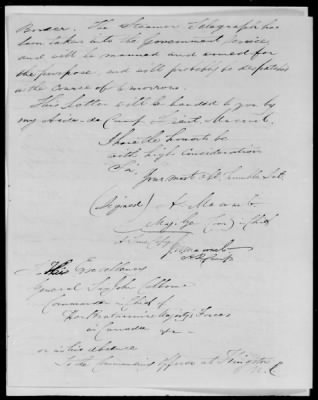 The Steamer Telegraph has
been taken into the Government service
and will be manned and armed for
the purpose, and will probably be dispatched
in the course of to morrow.
This Letter will be handed to you by
my Aide-de Camp Lieut.
I have the honor to be
with high consideration
Sir
Your most Obt. Humble Sert.
(Signed) A. Macomb
Maj. Ge Comg in Chief
A true Copy
To His Excellency
General Sir John Colborne
Commander in Chief of
Her Britannic Majesty's Forces
in Canada &c
or in his absence
To the Command Officer at Kingston
U. C